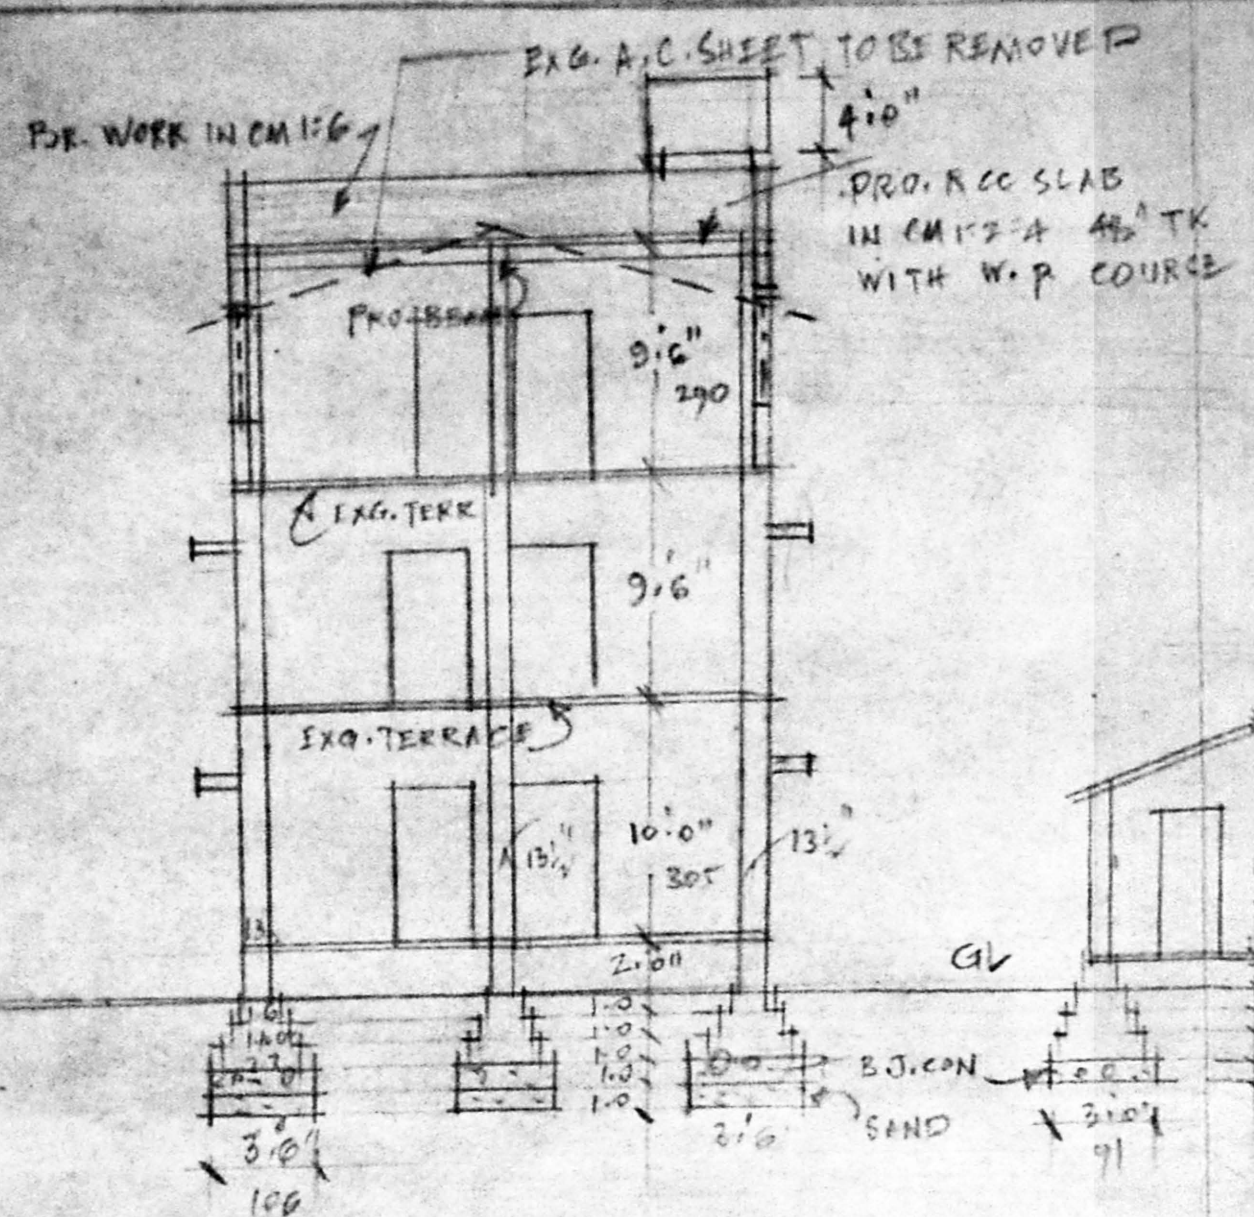 EXG. A.C. SHEET TO BE REMOVED
BR. WORK IN CM 1:6
4'.0"
PRO. RCC SLAB
IN CM 1:2:4 4½" TK
WITH W.P. COURCE
PRO BEAM
9'.6"
290
EXG. TERR
9'.6"
EXG. TERRACE
10'.0"
305
13½"
13½"
13
2'.0"
GL
1.0
1.0
1.0
1.0
1.0
B.J.CON
SAND
3'.6"
106
3'.6
3'.0"
91